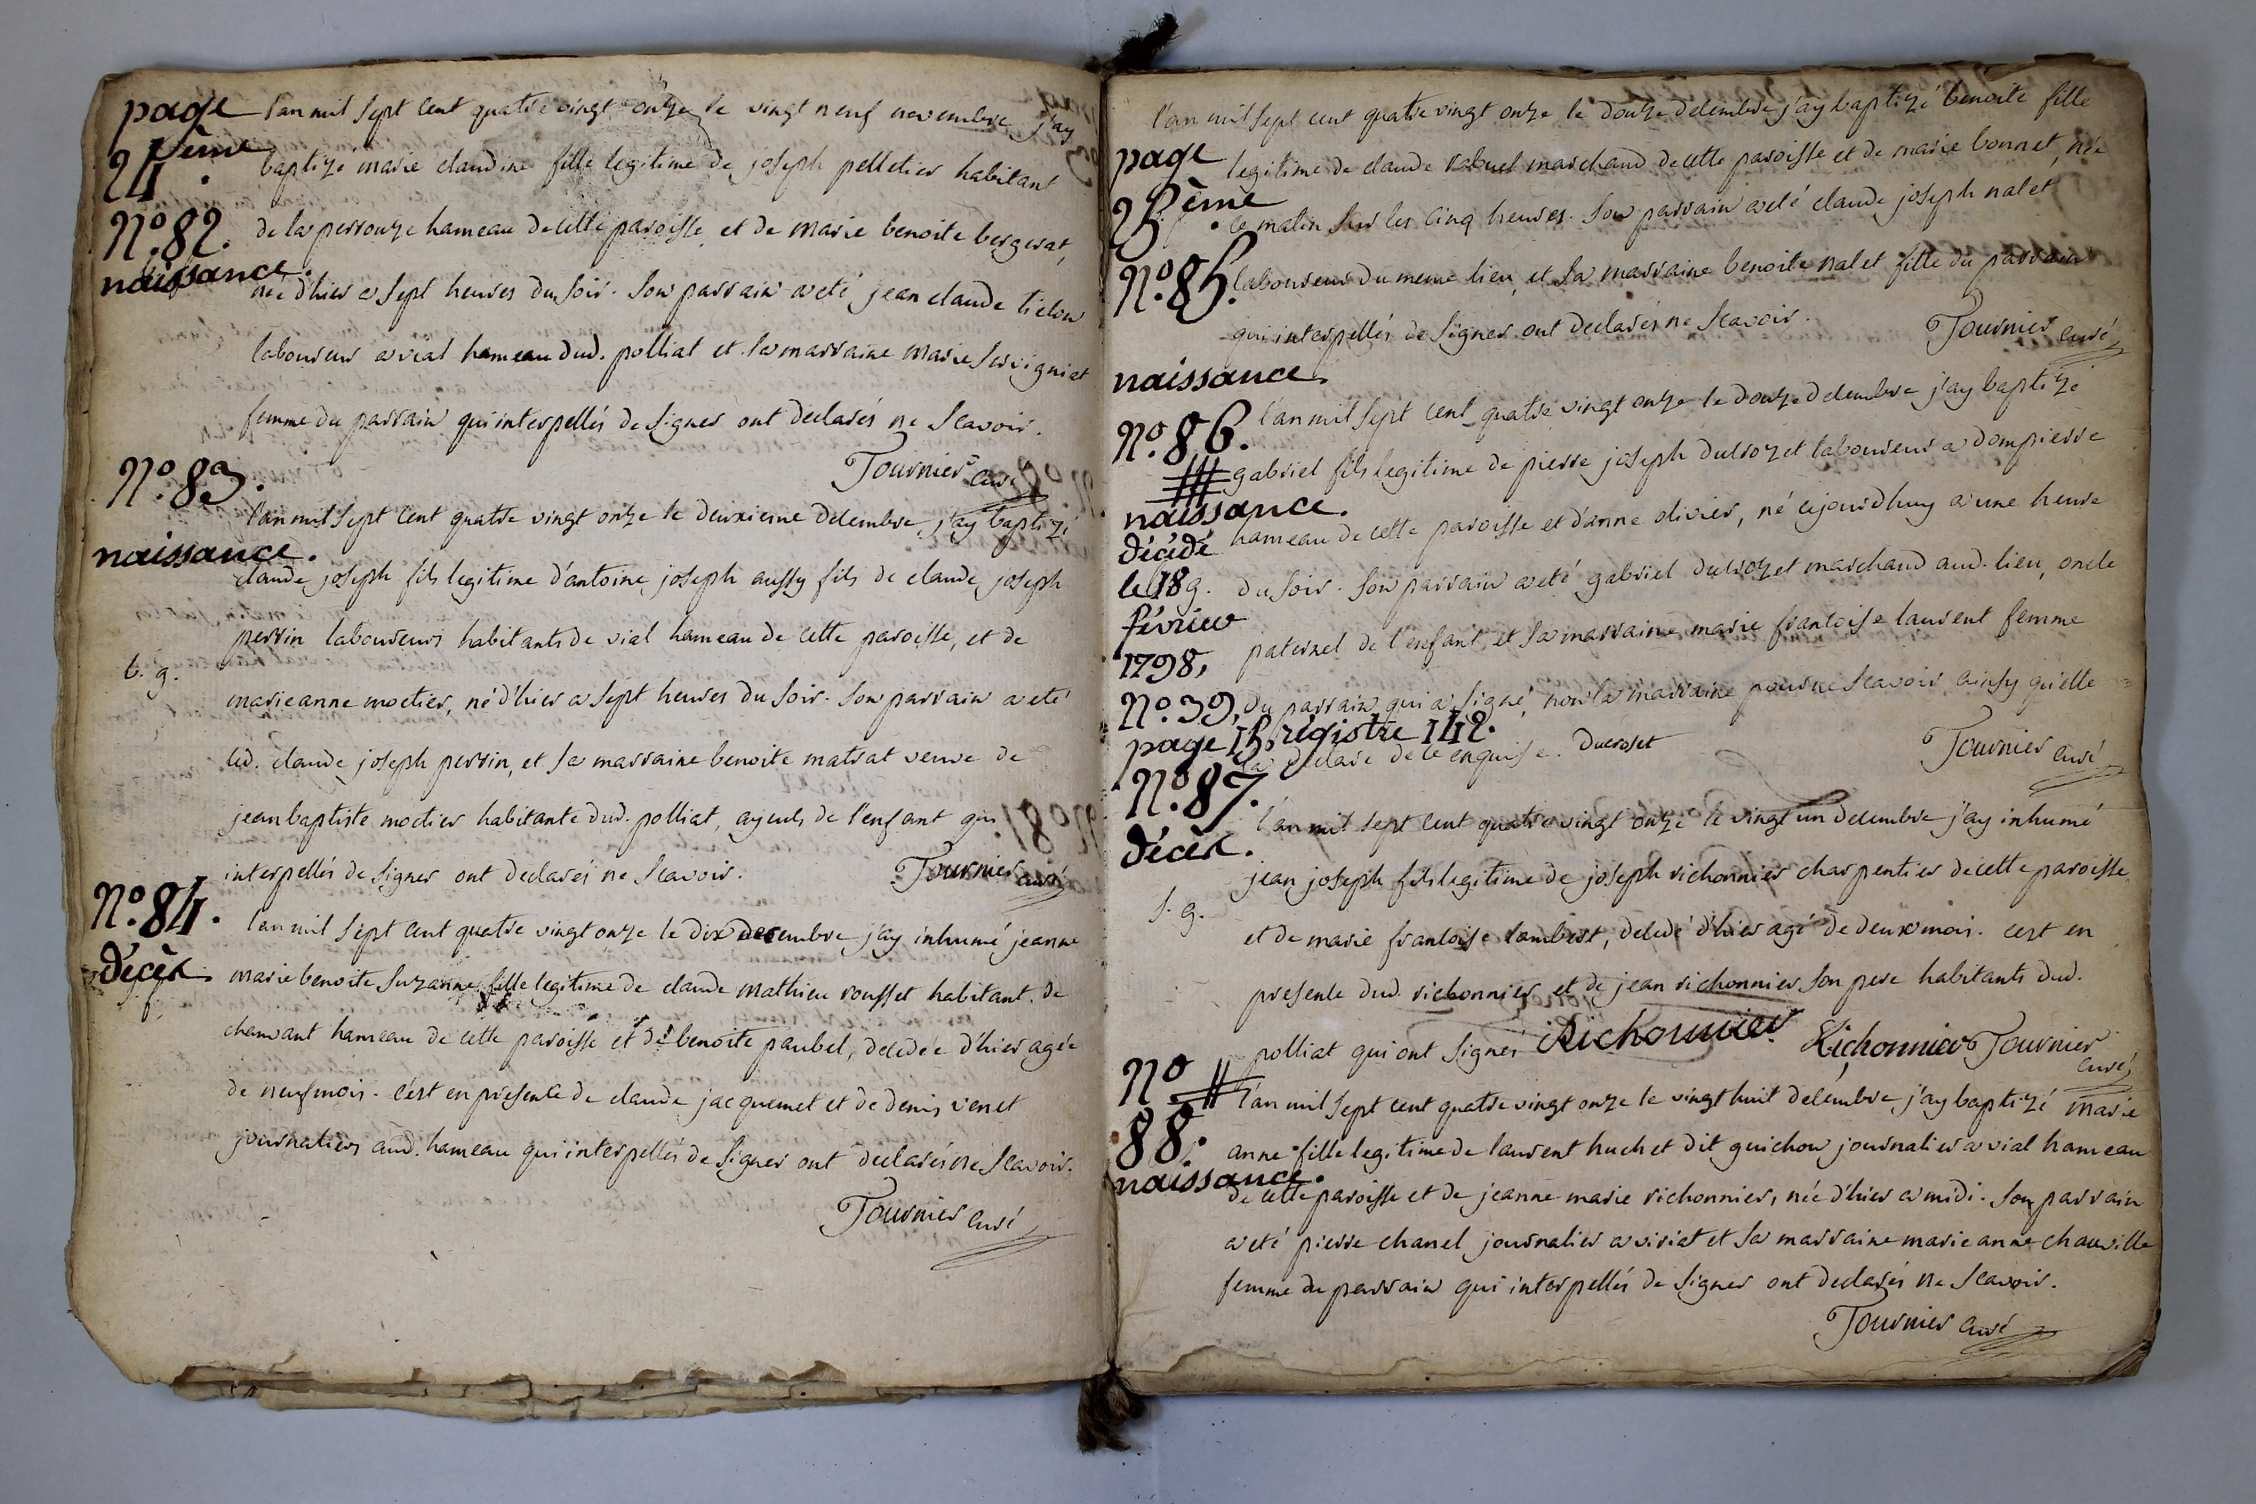 page
24ème.
N.º 82.
naissance.
l'an mil sept cent quatre vingt onze le vingt neuf novembre j'ay
baptizé marie claudine fille legitime de joseph pelletier habitant
de la perrouze hameau de cette paroisse et de marie benoite bergerat,
née d'hier a sept heures du soir. son parrain a eté jean claude
laboureur a vial hameau dud. polliat et la marraine marie servigniat
femme du parrain qui interpellés de signer ont declarés ne scavoir.
Tournier curé
N.º 83.
naissance.
b. g.
l'an mil sept cent quatre vingt onze le deuxieme decembre j'ay baptizé
claude joseph fils legitime d'antoine joseph aussy fils de claude joseph
perrin laboureurs habitants de vial hameau de cette paroisse, et de
marie anne moctier, né d'hier a sept heures du soir. son parrain a eté
led. claude joseph perrin, et sa marraine benoite matrat veuve de
jean baptiste moctier habitante dud. polliat, ayeuls de l'enfant qui
interpellés de signer ont declarés ne scavoir.
Tournier curé
N.º 84.
décès.
l'an mil sept cent quatre vingt onze le dix decembre j'ay inhumé jeanne
marie benoite suzanne fille legitime de claude mathieu rousset habitant de
chanvant hameau de cette paroisse et de benoite paubel, decedée d'hier agée
de neuf mois. c'est en presence de claude jacquemet et de denis venet
journaliers aud. hameau qui interpellés de signer ont declarés ne scavoir.
Tournier curé
page
25ème.
N.º 85.
naissance.
l'an mil sept cent quatre vingt onze le douze decembre j'ay baptizé benoite fille
legitime de claude rabuel marchand de cette paroisse et de marie bonnet, née
ce matin sur les cinq heures. son parrain a eté claude joseph nalet
laboureur du meme lieu, et sa marraine benoite nalet fille du parrain
qui interpellés de signer ont declarés ne scavoir.
Tournier curé
N.º 86.
naissance.
décédé
le 18
février
1798,
N.º 39,
page 15, régistre 142.
l'an mil sept cent quatre vingt onze le douze decembre j'ay baptizé
gabriel fils legitime de pierre joseph ducrozet laboureur a dompierre
hameau de cette paroisse et d'anne olivier, né cejourdhuy a une heure
du soir. son parrain a eté gabriel ducrozet marchand aud. lieu, oncle
paternel de l'enfant et sa marraine marie francoise laurent femme
du parrain qui a signé, non la marraine pour ne scavoir ainsy qu'elle
l'a declaré de ce enquise. Ducroset
Tournier curé
N.º 87.
décès.
s. g.
l'an mil sept cent quatre vingt onze le vingt un decembre j'ay inhumé
jean joseph fils legitime de joseph richonnier charpentier de cette paroisse
et de marie francoise lambert, decedé d'hier agé de deux mois. c'est en
presence dud. richonnier et de jean richonnier son pere habitants dud.
polliat qui ont signés Richonnier Richonnier Tournier
curé
N.º
88.
naissance.
l'an mil sept cent quatre vingt onze le vingt huit decembre j'ay baptizé marie
anne fille legitime de laurent huchet dit guichon journalier a vial hameau
de cette paroisse et de jeanne marie richonnier, née d'hier a midi. son parrain
a eté pierre chanel journalier a viriat et sa marraine marie anne chauville
femme du parrain qui interpellés de signer ont declarés ne scavoir.
Tournier curé